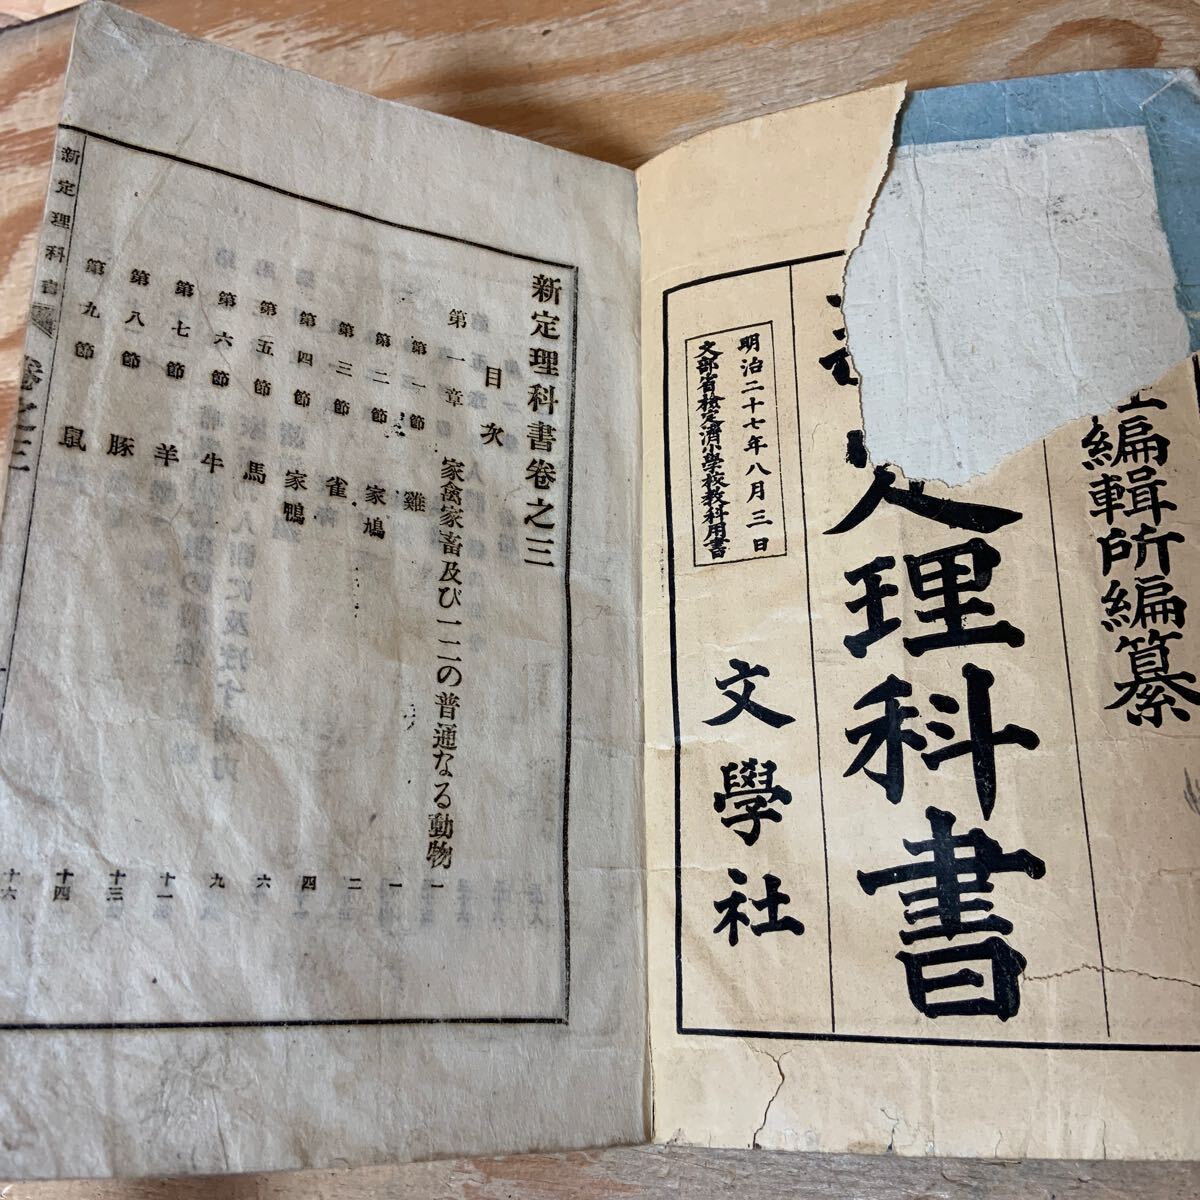 編輯所編纂
理科書
明治二十七年八月三日
文部省檢定濟小學校教科用書
文學社
新定理科書卷之三
目次
第一章 家禽家畜及び一二の普通なる動物 一
第一節 雞 一
第二節 家鳩 二
第三節 雀
第四節 家鴨 四
第五節 馬 六
第六節 牛 九
第七節 羊 十一
第八節 豚 十三
第九節 鼠 十四
十六
新定理科書 卷之三